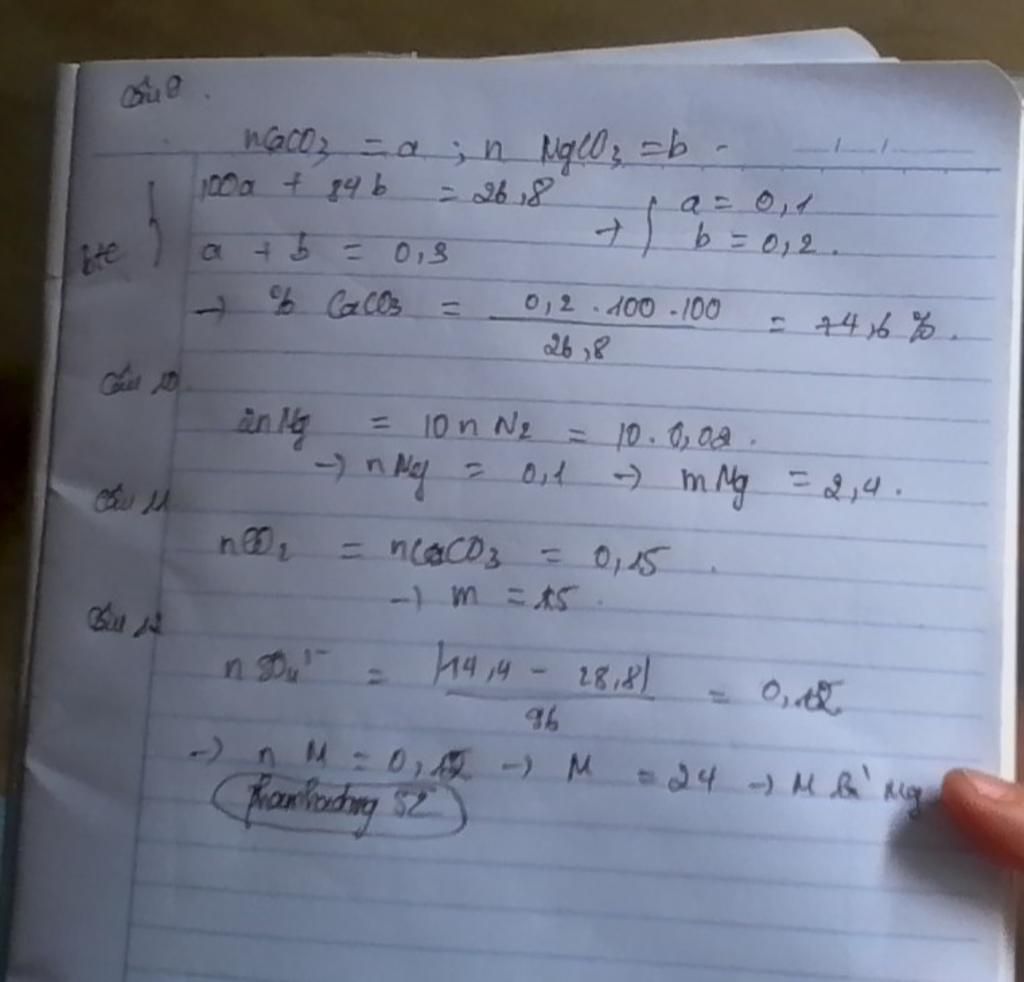 Câu 8.
nCaCO3 = a ; n MgCO3 = b
100a + 84b = 26,8
→ { a = 0,1
b = 0,2.
btc
a + b = 0,3
→ % CaCO3 = 0,2 . 100 . 100 / 26,8 = 74,6 %.
Câu 10
2nMg = 10nN2 = 10 . 0,02.
→ nMg = 0,1 → mMg = 2,4.
Câu 11
nCO2 = nCaCO3 = 0,15.
→ m = 15.
Câu 12
= |14,4 - 28,8| / 96 = 0,15
→ n M = 0,15 → M = 24 → M là Mg